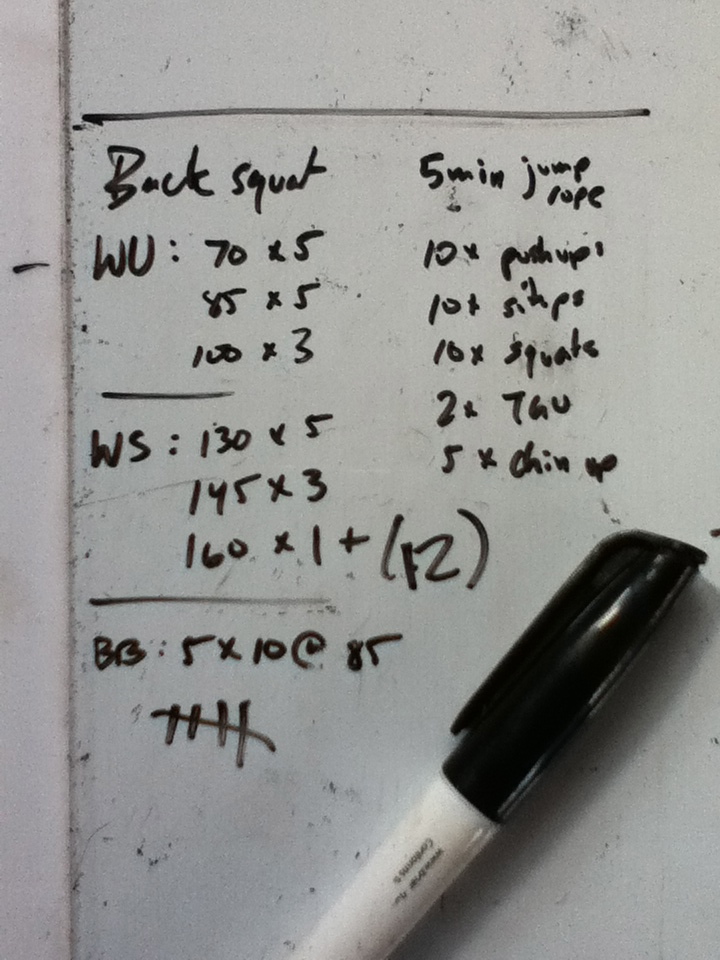 Back squat
WU: 70 x 5
85 x 5
100 x 3
WS: 130 x 5
145 x 3
160 x 1 + (12)
BB: 5 x 10 @ 85
5 min jump
rope
10x pushups
10x situps
10x squats
2x TGU
5 x chin up